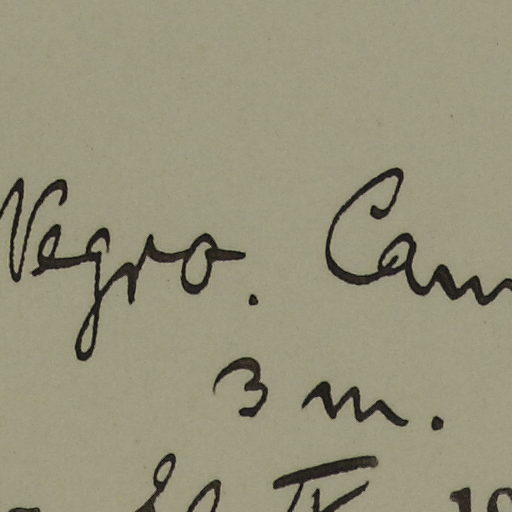 Negro. Cam
3 m.
IV 19